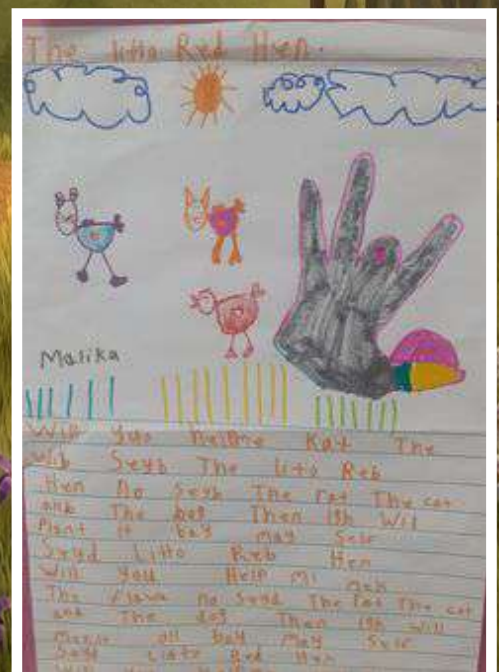 The litto Red Hen.
Malika
Will you helme Kat The
wib Seyb The lito Reb
Hen No Seyb The rat The cat
anb The bog Then Igh Wil
Plant it bay may Self
Seyd Litto Reb Hen
Will you Help mi
The no Seyd The rat The cat
and The dog Then Igh will
all bay May Self
Seyd Litto Red Hen